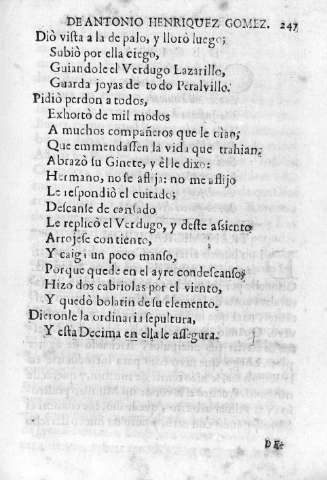 DE ANTONIO HENRIQUEZ GOMEZ. 247
Diò vista a la de palo, y llorò luego;
Subiò por ella ciego,
Guiandole el Verdugo Lazarillo,
Guarda joyas de todo Peralvillo.
Pidiò perdon a todos,
Exhortò de mil modos
A muchos compañeros que le oian,
Que emmendassen la vida que trahian.
Abrazò su Ginete, y èl le dixo:
Hermano, no se aflija: no me aflijo
Le respondiò el cuitado;
Descanse de cansado
Le replicò el Verdugo, y deste assiento
Arrojese con tiento,
Y caiga un poco manso,
Porque quede en el ayre con descanso;
Hizo dos cabriolas por el viento,
Y quedò bolatin de su elemento.
Dieronle la ordinaria sepultura,
Y esta Decima en ella le assegura.